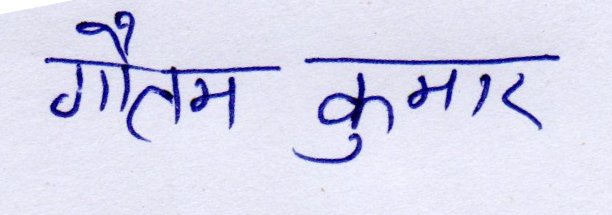 गौतम कुमार